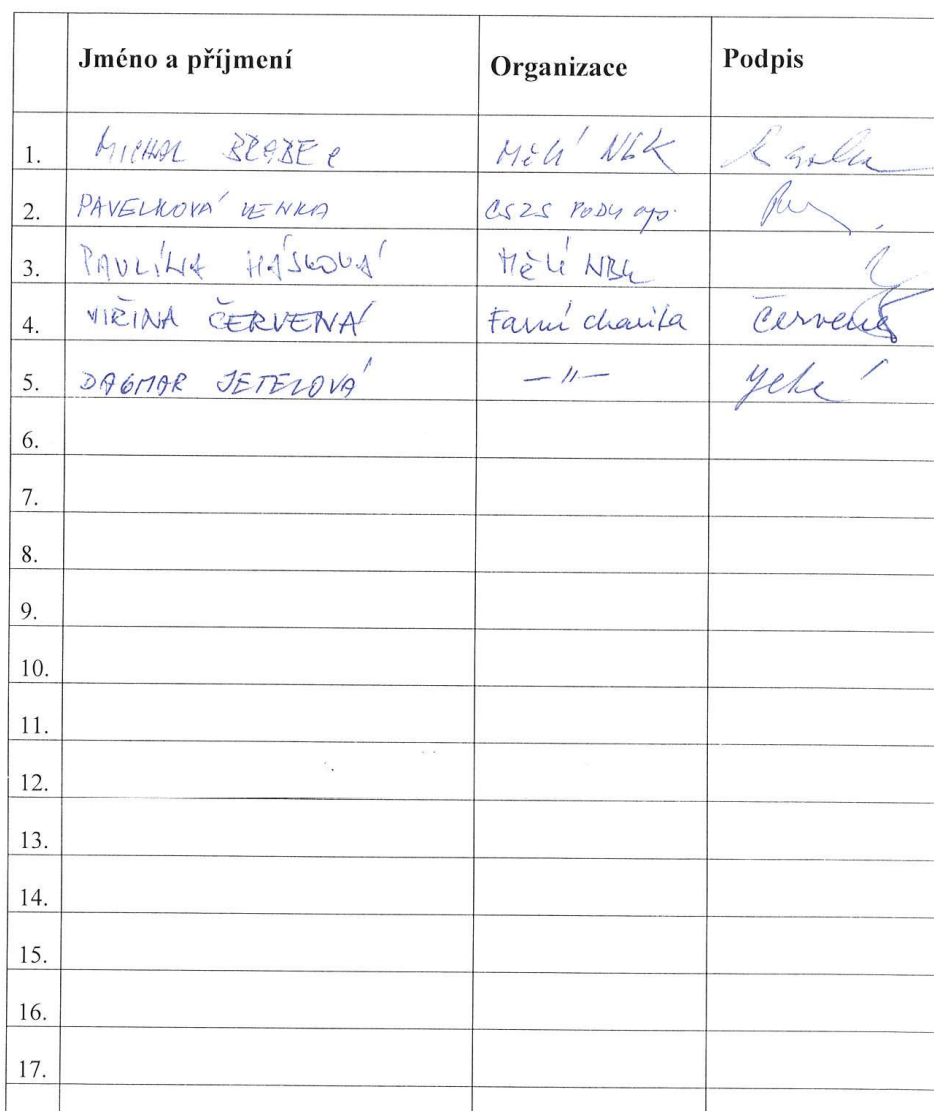 Jméno a příjmení Organizace Podpis
1. MICHAL BRABEC MěÚ NBK
2. PAVELKOVÁ LENKA CSZS PODY ops.
3. PAVLÍNA HÁSKOVÁ MěÚ NBK
4. JIŘINA ČERVENÁ Farní charita Červená
5. DAGMAR JETELOVÁ —〃—
6.
7.
8.
9.
10.
11.
12.
13.
14.
15.
16.
17.